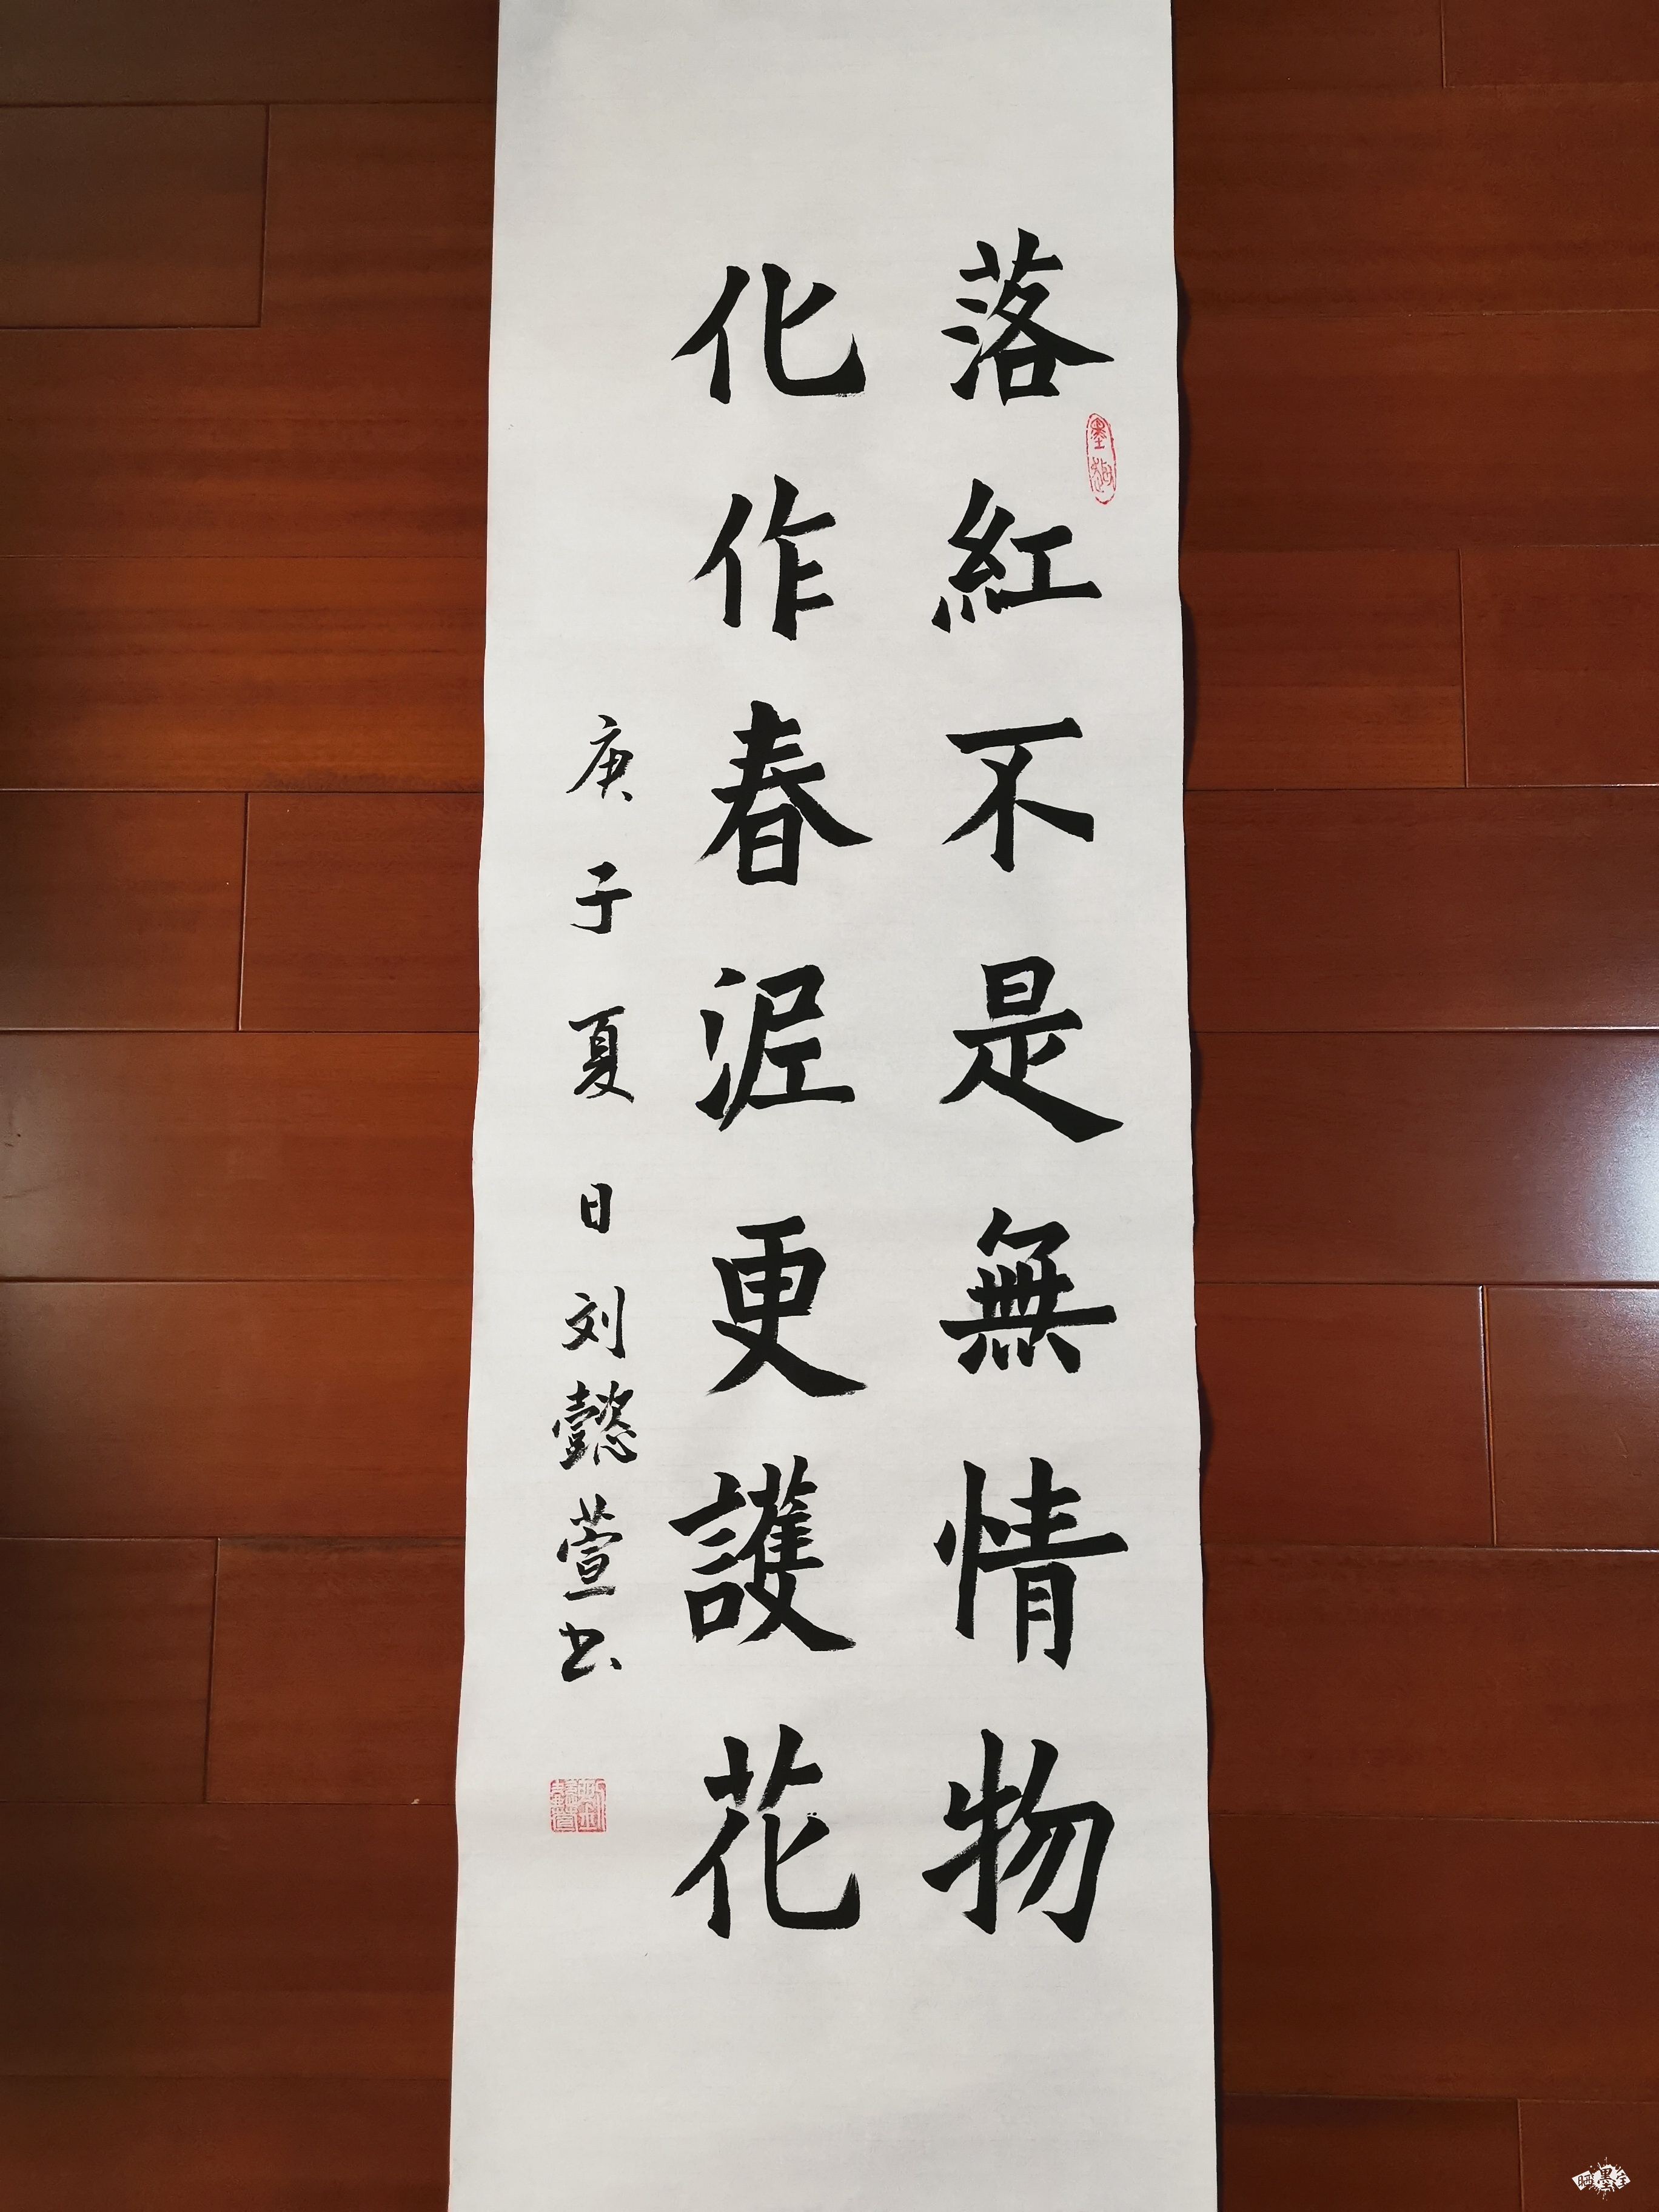 落紅不是無情物
化作春泥更護花
庚子夏日刘懿萱书